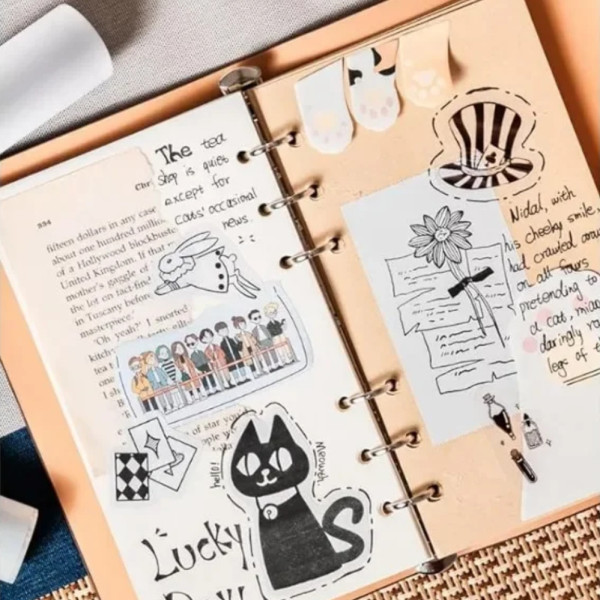 The tea
shop is quiet
except for
cats' occasional
news.
334
Chr
fifteen dollars in any case
about one hundred millio
of a Hollywood blockbuste
United Kingdom. If that
mother's gaggle of
the lot on fact-find
in Tuscany before
masterpiece.
"Oh yeah?" I snorted
kitch
one
I sh
"B
of star you
hello!
Meough.
Lucky
Day!
Nidal, with
his cheeky smile,
had crawled arou
on all fours
pretending to
a cat, miao
daringly ro
legs of t